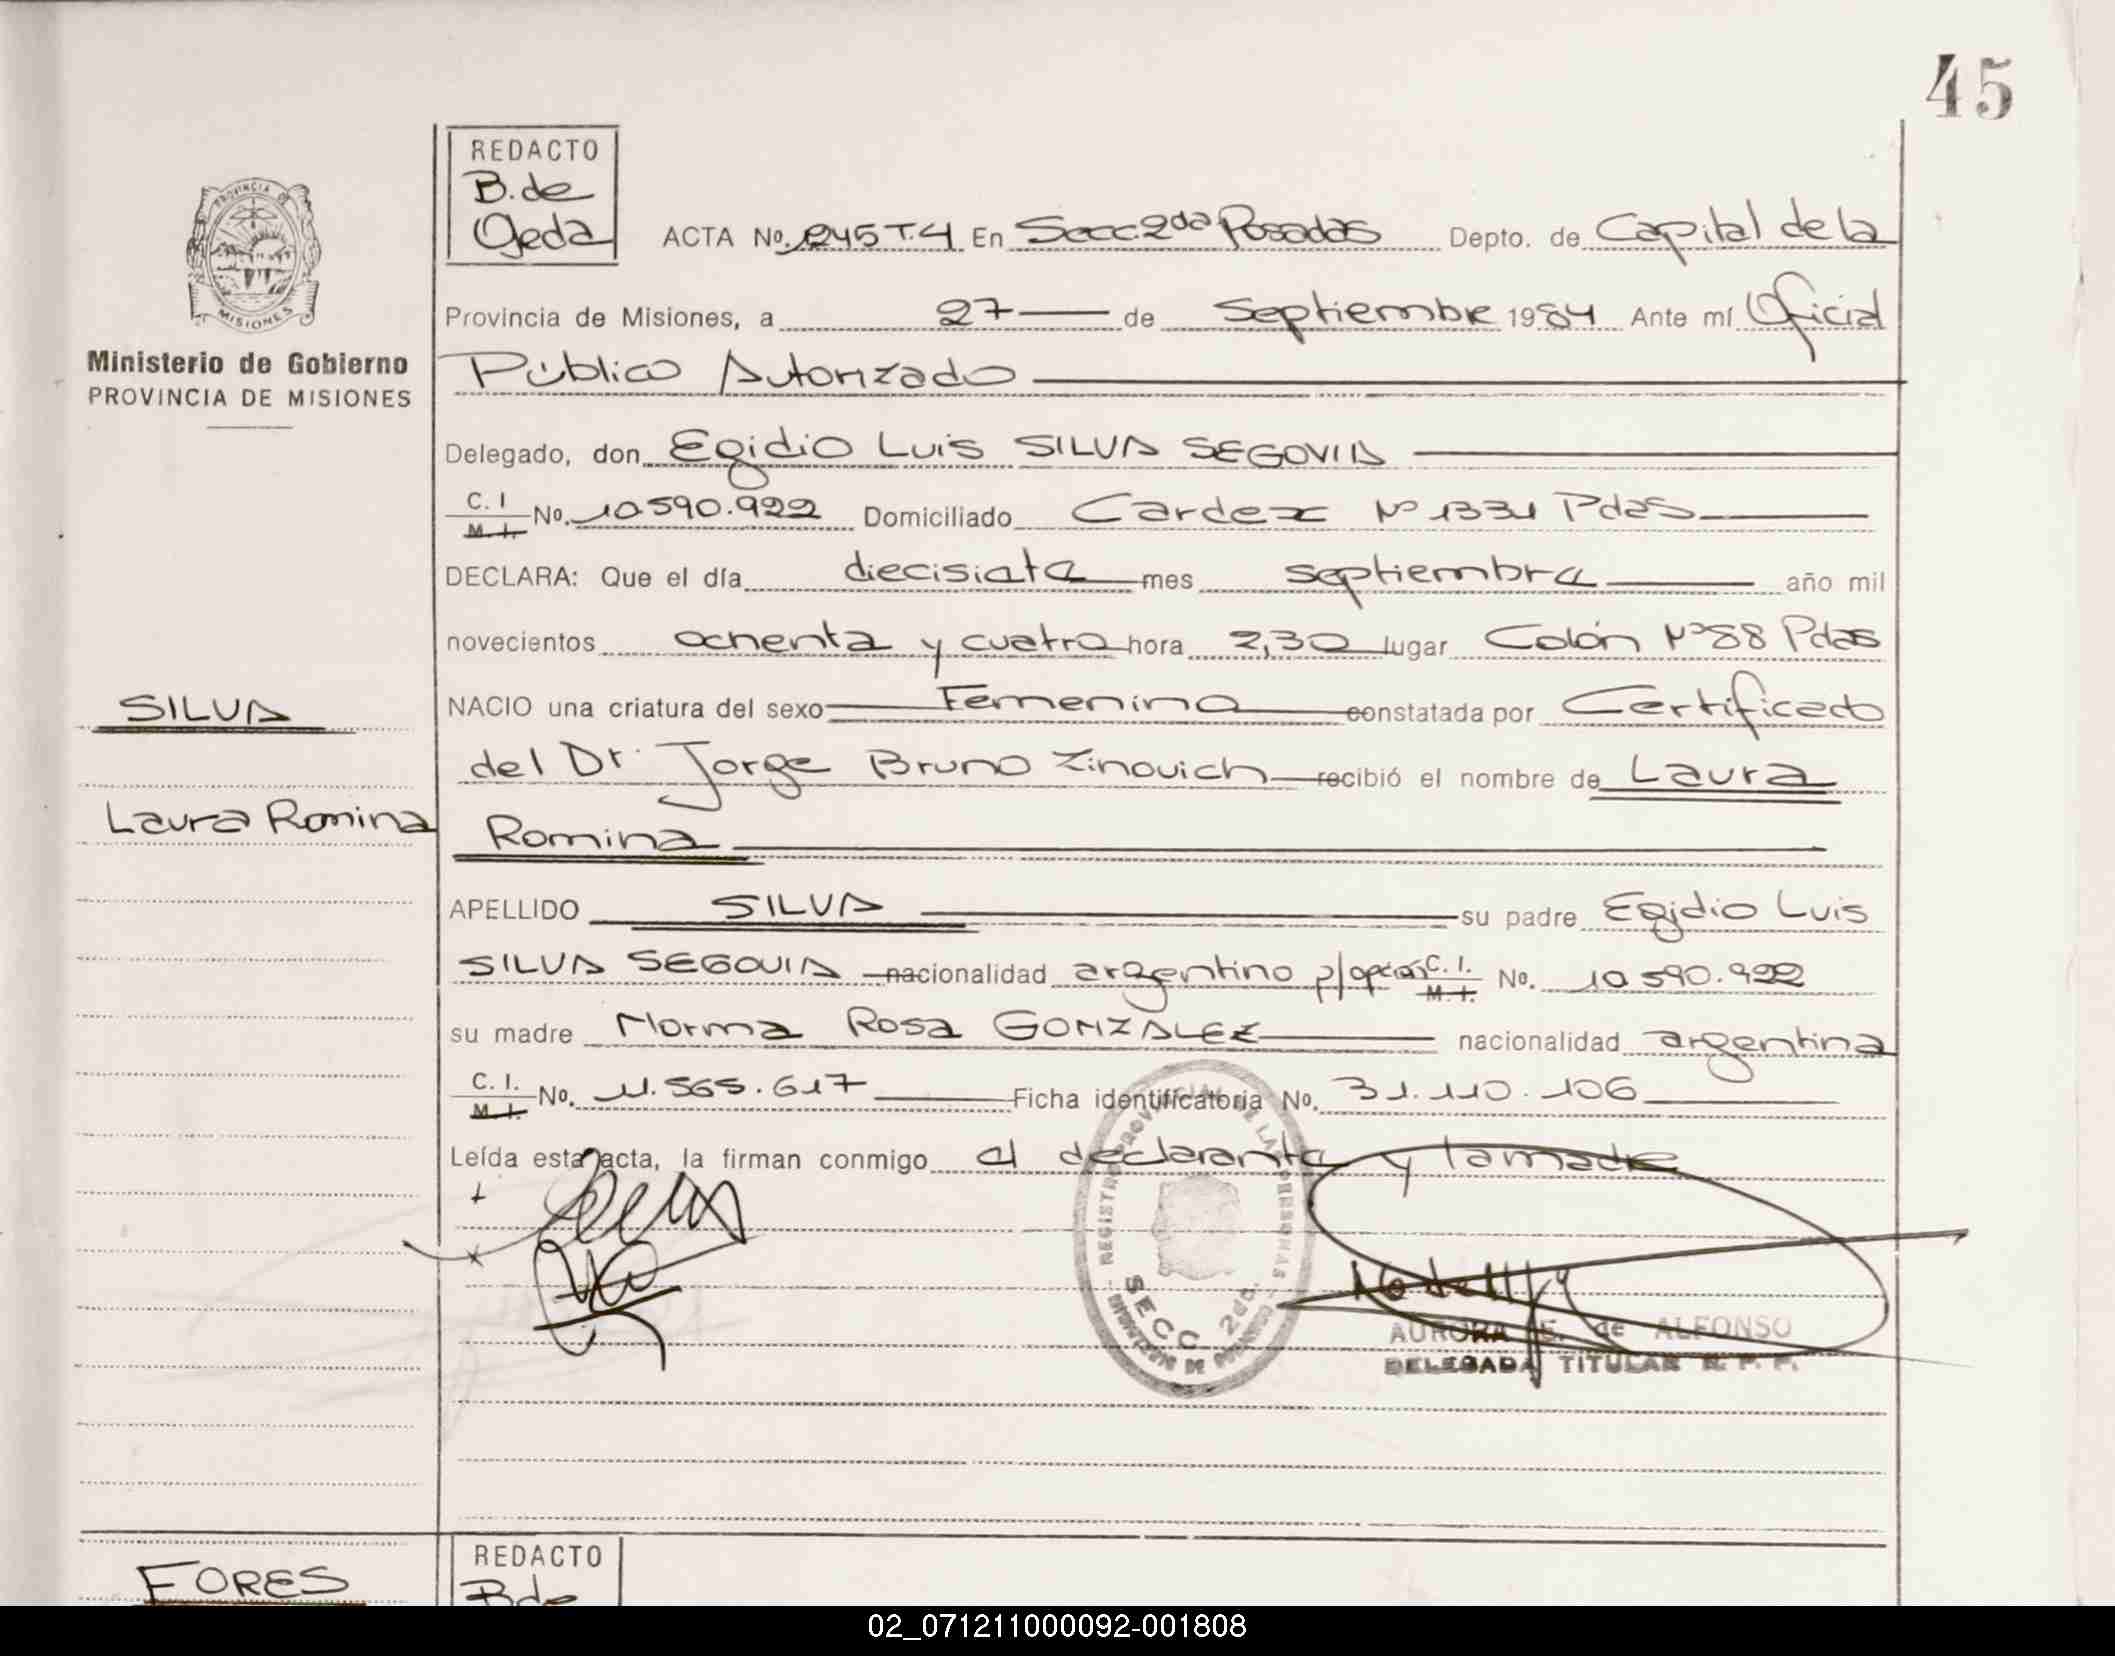 45
REDACTO
B. de
Ojeda
ACTA No. 245 T.4 En Secc. 2da Posadas Depto. de Capital de la
PROVINCIA DE
MISIONES
Provincia de Misiones, a 27 de Septiembre 1984 Ante mí Oficial
Ministerio de Gobierno
PROVINCIA DE MISIONES
Público Autorizado
Delegado, don Egidio Luis SILVA SEGOVIA
C. I. M. I. No. 10.590.922 Domiciliado Cardex Nº 1331 Pdas
DECLARA: Que el día diecisiete mes septiembre año mil
novecientos ochenta y cuatro hora 2,30 lugar Colón Nº 88 Pdas
SILVA
NACIO una criatura del sexo Femenino constatada por Certificado
del Dr. Jorge Bruno Zinovich recibió el nombre de Laura
Laura Romina
Romina
APELLIDO SILVA su padre Egidio Luis
SILVA SEGOVIA nacionalidad argentino p/opción C. I. M. I. No. 10.590.922
su madre Norma Rosa GONZALEZ nacionalidad argentina
C. I. M. I. No. 11.565.617 Ficha identificatoria No. 31.110.106
Leída esta acta, la firman conmigo el declarante y la madre
REGISTRO PROVINCIAL DE LAS PERSONAS
SECC 2da.
AURORA E. de ALFONSO
DELEGADA TITULAR R. P. P.
FORES
REDACTO
B. de
02_071211000092-001808